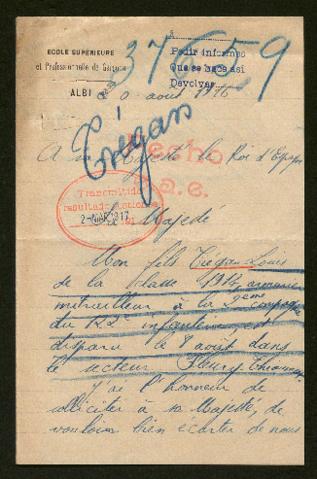 ECOLE SUPÉRIEURE
et Professionnelle de Garçons
ALBI
37659
Pedir informes
Que se hace asi
Devolver
août 1916
Trégan
A Sa Majesté le Roi d'Espagne
Hecho
Transmitido
resultado gestiones
2-MAR 1917
Majesté
Mon fils Trégan Louis
de la classe 1914
mitrailleur à la 2eme Compagnie
du 122 infanterie, est
disparu le 8 août dans
le secteur Fleury Thiaumont
J'ai l'honneur de
solliciter à sa Majesté, de
vouloir bien écarter de nous